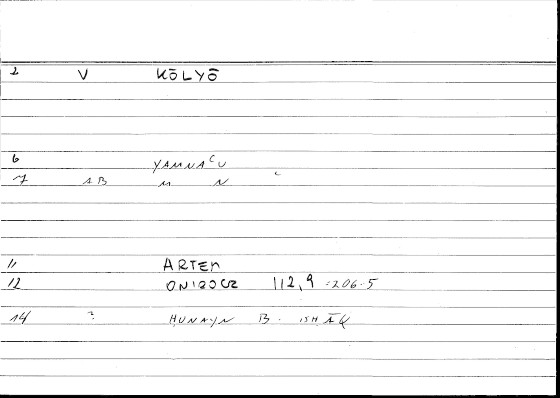 2 V KŌLYŌ
6 YAMNAᶜU
7 AB M N ᶜ
11 ARTEM
12 ONIROCR 112,9 =206.5
14 ? HUNAYN B. ISHĀQ